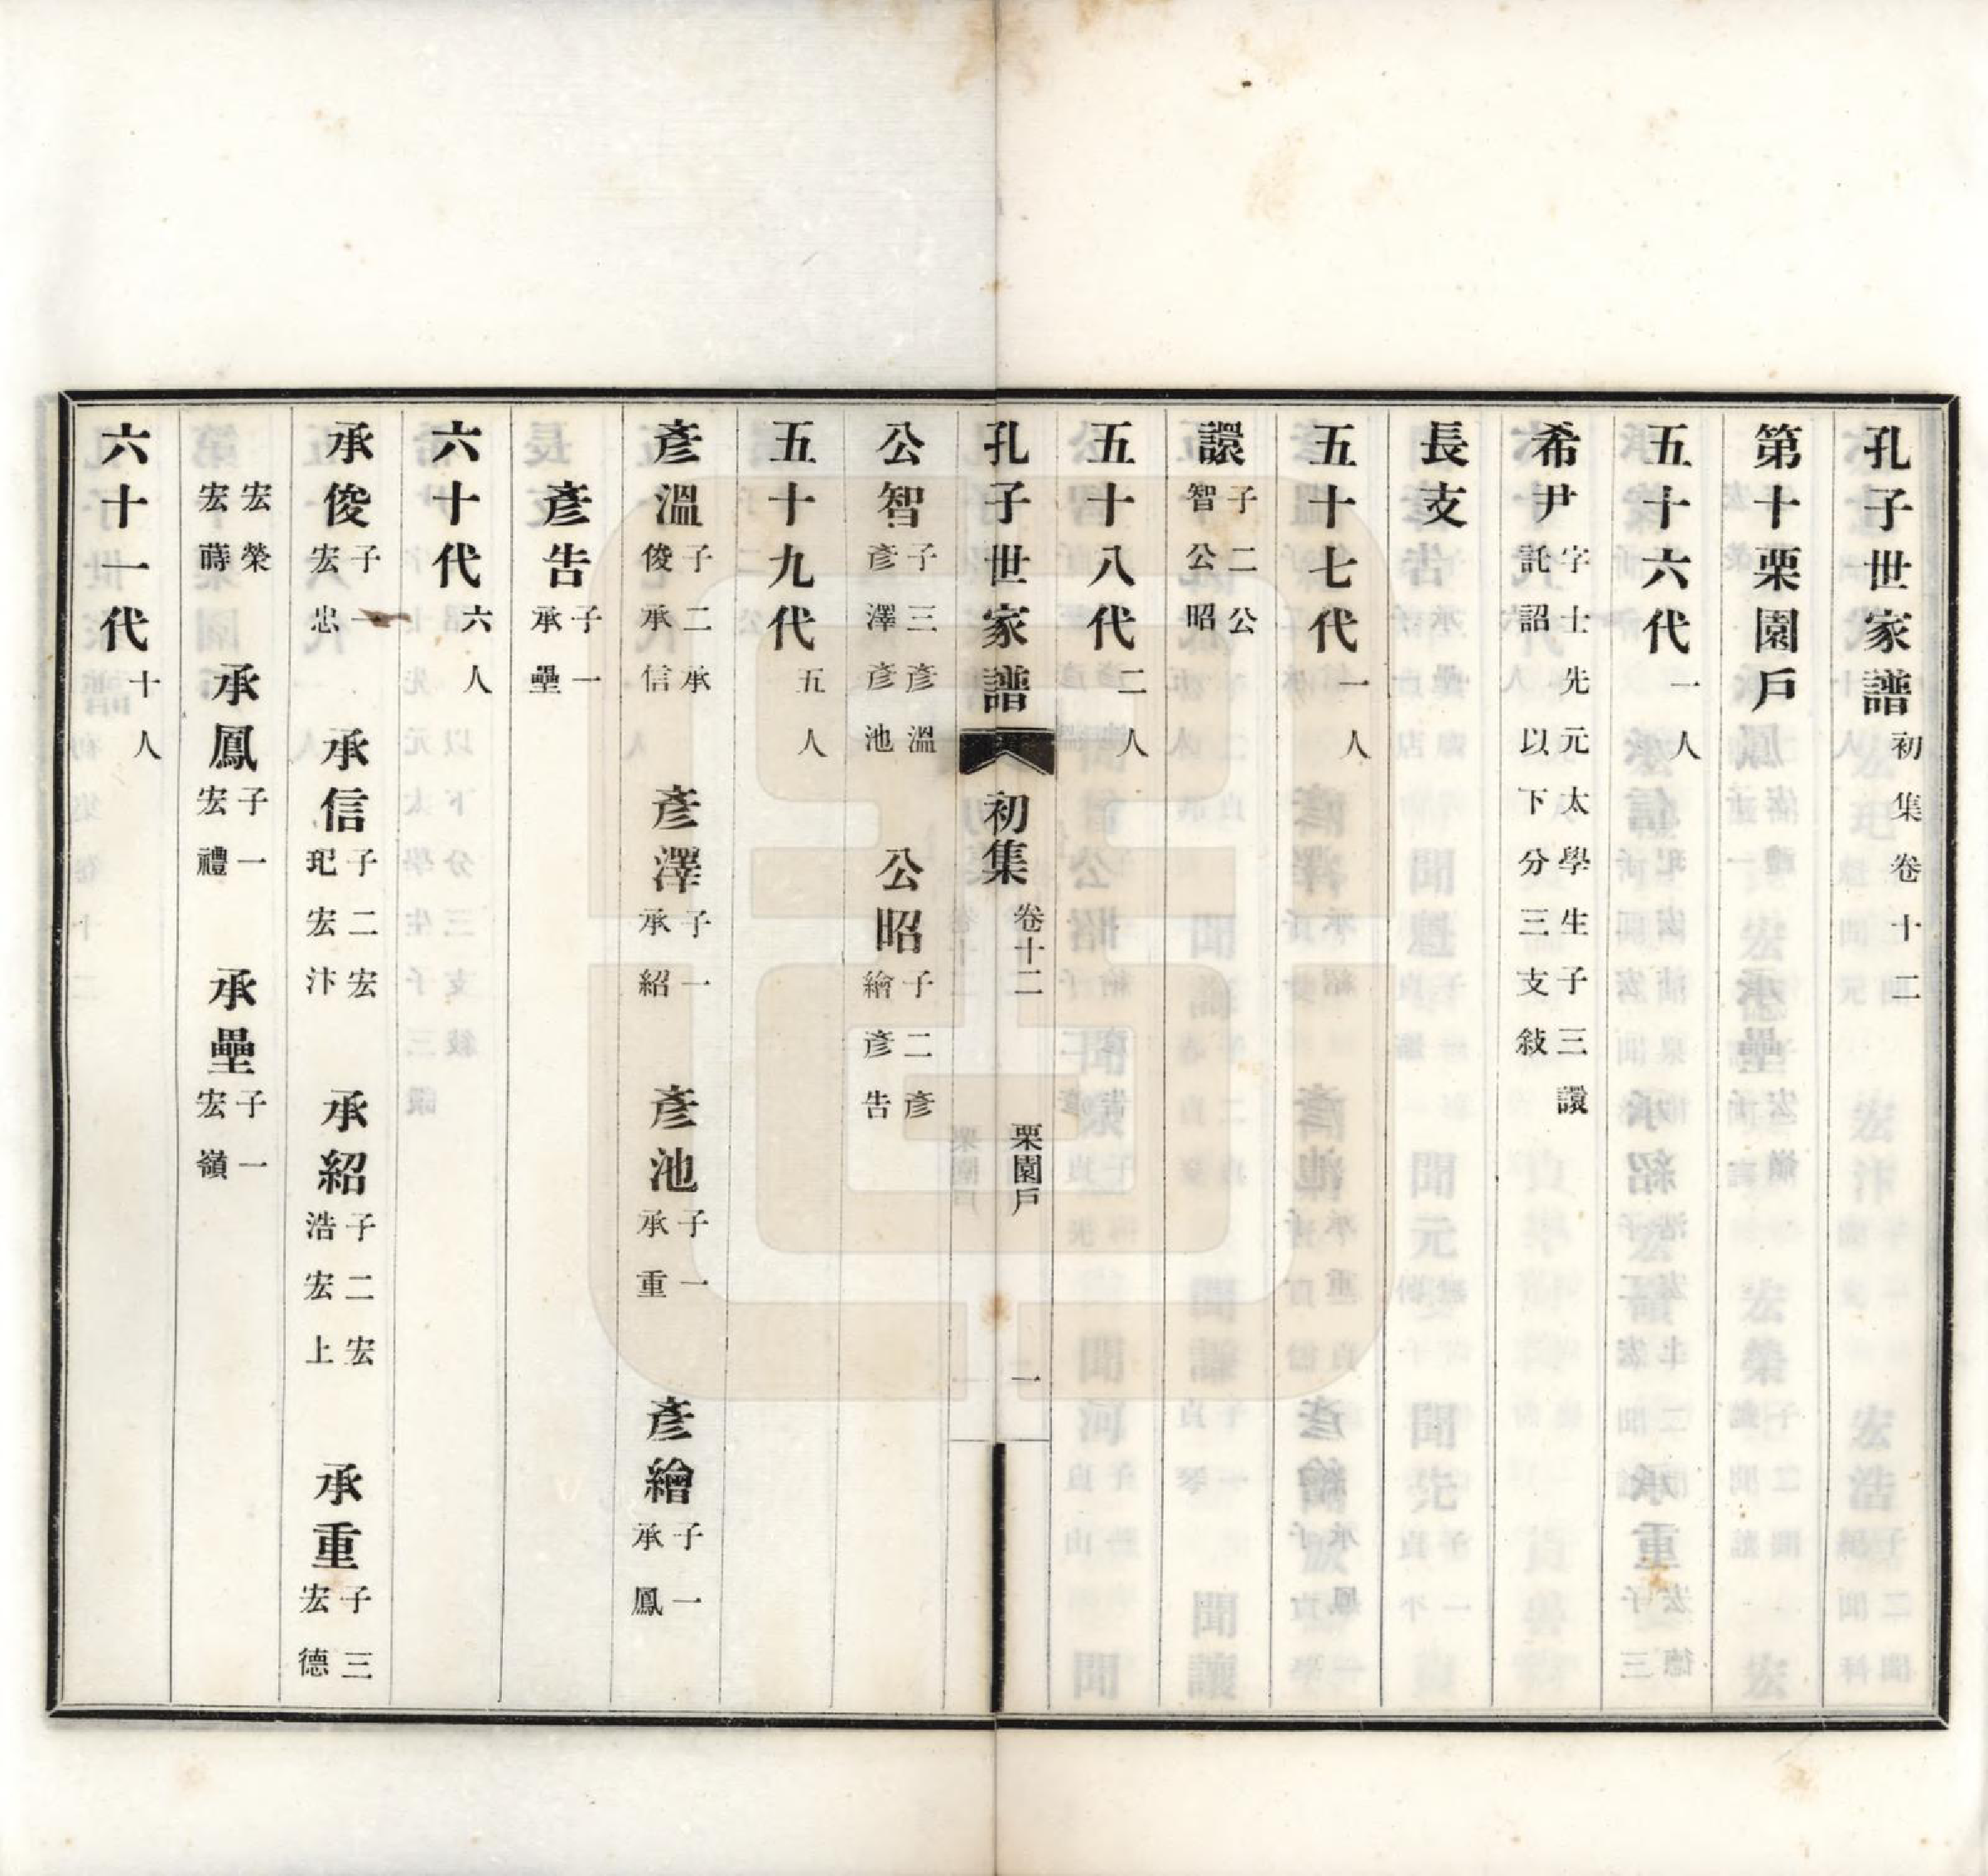 孔子世家譜初集卷十二
第十栗園戶
五十六代一人
希尹字士先元太學生子三讓託詔以下分三支敍
長支
五十七代一人
讓子二公智公昭
五十八代二人
孔子世家譜 初集 卷十二 栗園戶 一
公智子三彥溫彥澤彥池 公昭子二彥繪彥告
五十九代五人
彥溫子二承俊承信 彥澤子一承紹 彥池子一承重 彥繪子一承鳳
彥告子一承壘
六十代六人
承俊子一宏忠 承信子二宏玘宏汴 承紹子二宏浩宏上 承重子三宏德
宏榮宏蒔 承鳳子一宏禮 承壘子一宏嶺
六十一代十人